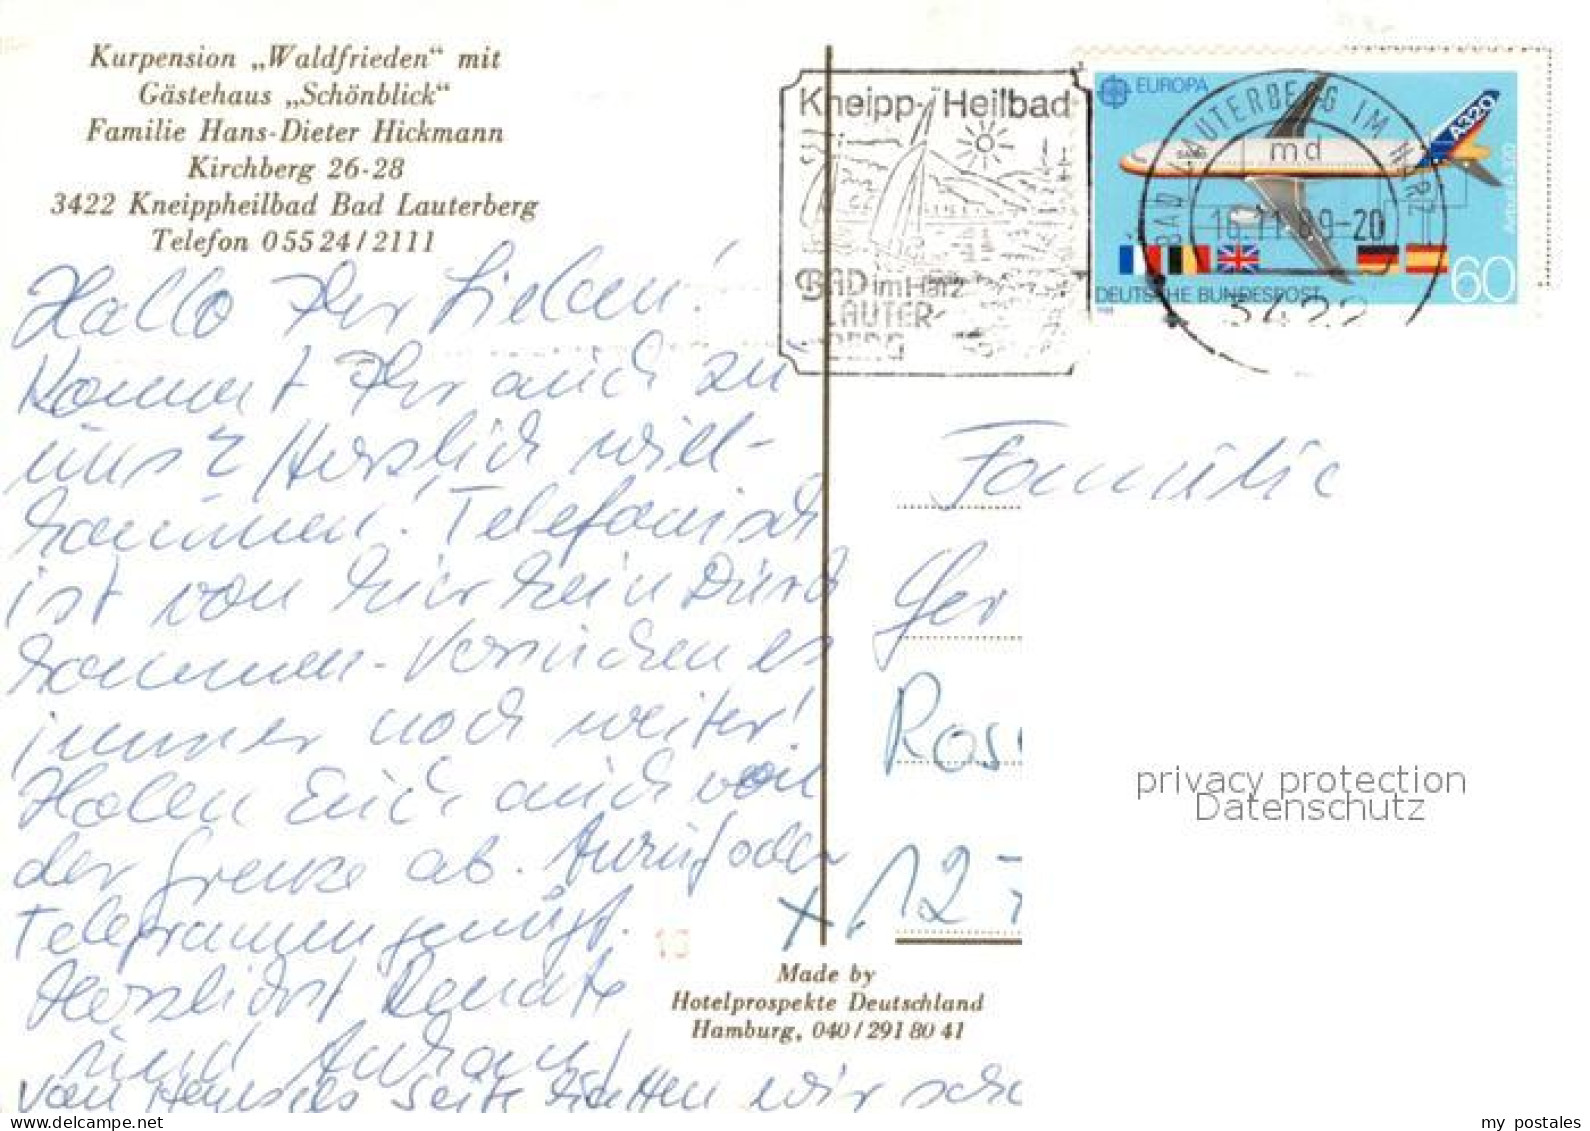 Kurpension „Waldfrieden“ mit
Gästehaus „Schönblick“
Familie Hans-Dieter Hickmann
Kirchberg 26-28
3422 Kneippheilbad Bad Lauterberg
Telefon 05524/2111
Hallo Ihr Lieben!
Kommt Ihr auch zu
uns? Herzlich will-
kommen! Telefonisch
ist von hier kein Durch
kommen. Versuchen es
immer noch weiter!
Holen Euch auch von
der Grenze ab. Anruf oder
Telegramm genügt.
Herzlichst Renate
und
von Seite hatten wir sch
Kneipp-Heilbad
BAD im Harz
LAUTER-
BERG
EUROPA
A320
Airbus A320
DEUTSCHE BUNDESPOST
60
BAD LAUTERBERG IM HARZ
md
16.11.89-20
3422
Familie
Ger
Ros
12
privacy protection
Datenschutz
Made by
Hotelprospekte Deutschland
Hamburg, 040/291 80 41
my postales